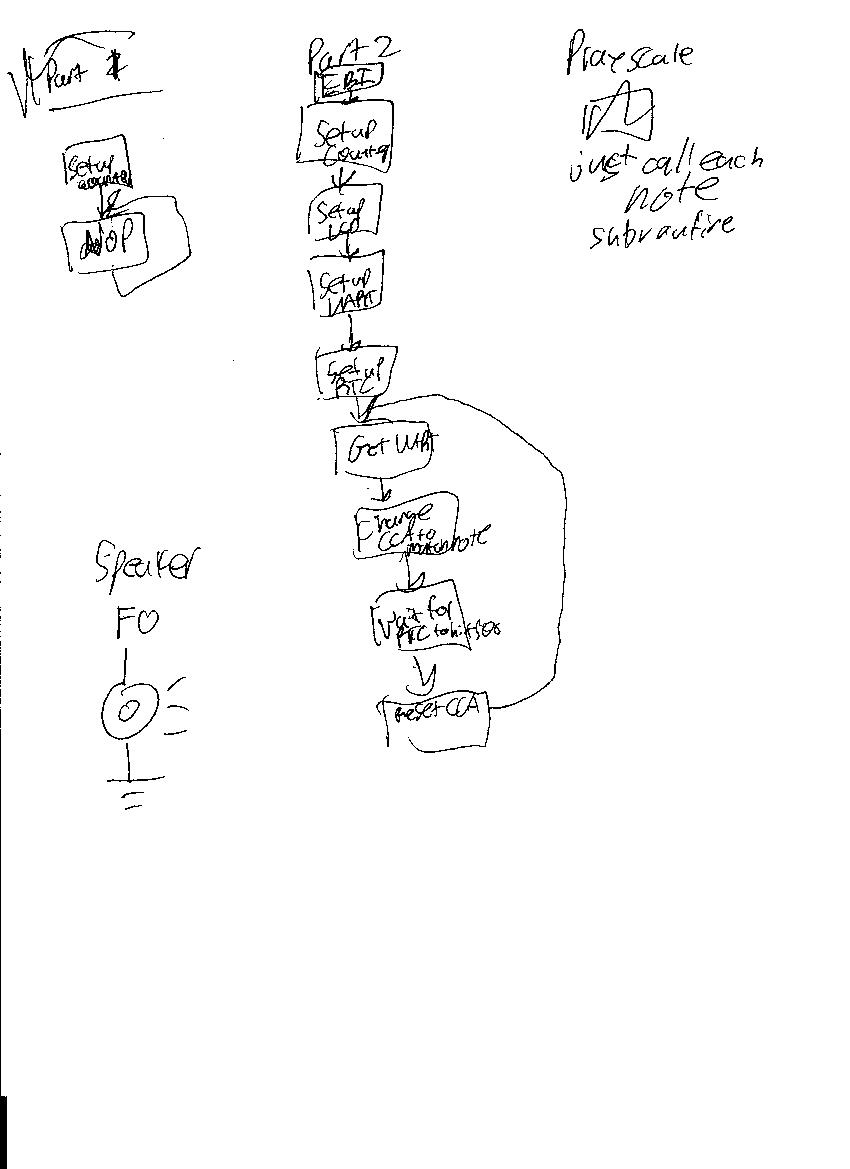 Part 1
Setup
counter
NOP
Part 2
EBI
Setup
Counter
Setup
LCD
Setup
UART
Setup
RTC
Get UART
Change
CCA to
match note
Wait for
RTC to hit
reset CCA
Playscale
just call each
note
subroutine
Speaker
F0